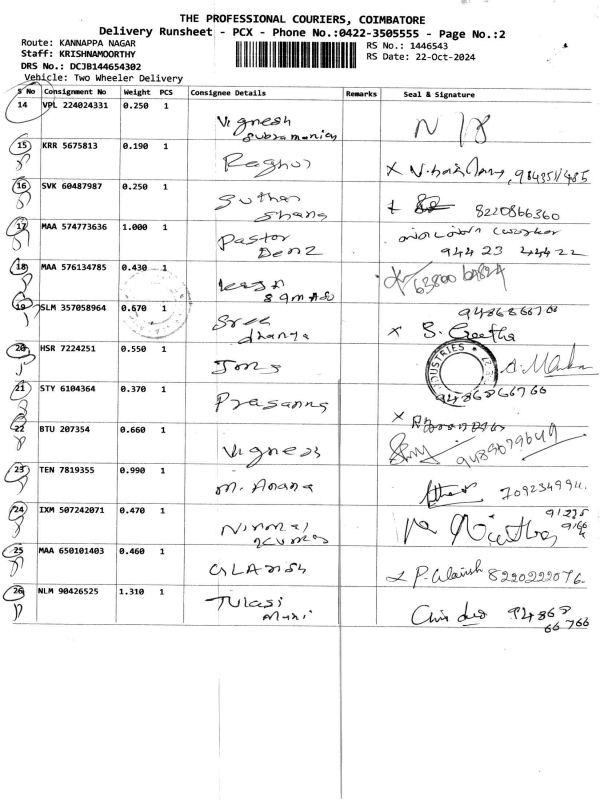 THE PROFESSIONAL COURIERS, COIMBATORE
Delivery Runsheet - PCX - Phone No.:0422-3505555 - Page No.:2
Route: KANNAPPA NAGAR
Staff: KRISHNAMOORTHY
DRS No.: DCJB144654302
Vehicle: Two Wheeler Delivery
RS No.: 1446543
RS Date: 22-Oct-2024
S No Consignment No Weight PCS Consignee Details Remarks Seal & Signature
14 VPL 224024331 0.250 1 Vignesh
15 KRR 5675813 0.190 1 Raghu
16 SVK 60487987 0.250 1 8220866360
17 MAA 574773636 1.000 1 Pastor 94423 44422
18 MAA 576134785 0.430 1
19 SLM 357058964 0.670 1 Sree dhanya x S. Geetha
20 HSR 7224251 0.550 1 INDUSTRIES
21 STY 6104364 0.370 1 Prasanna 9486866766
22 BTU 207354 0.660 1 Vignesh
23 TEN 7819355 0.990 1 M. Anand
24 IXM 507242071 0.470 1 Nirmal Kumar
25 MAA 650101403 0.460 1 8220222076
26 NLM 90426525 1.310 1 Tulasi Mani 94868 66766